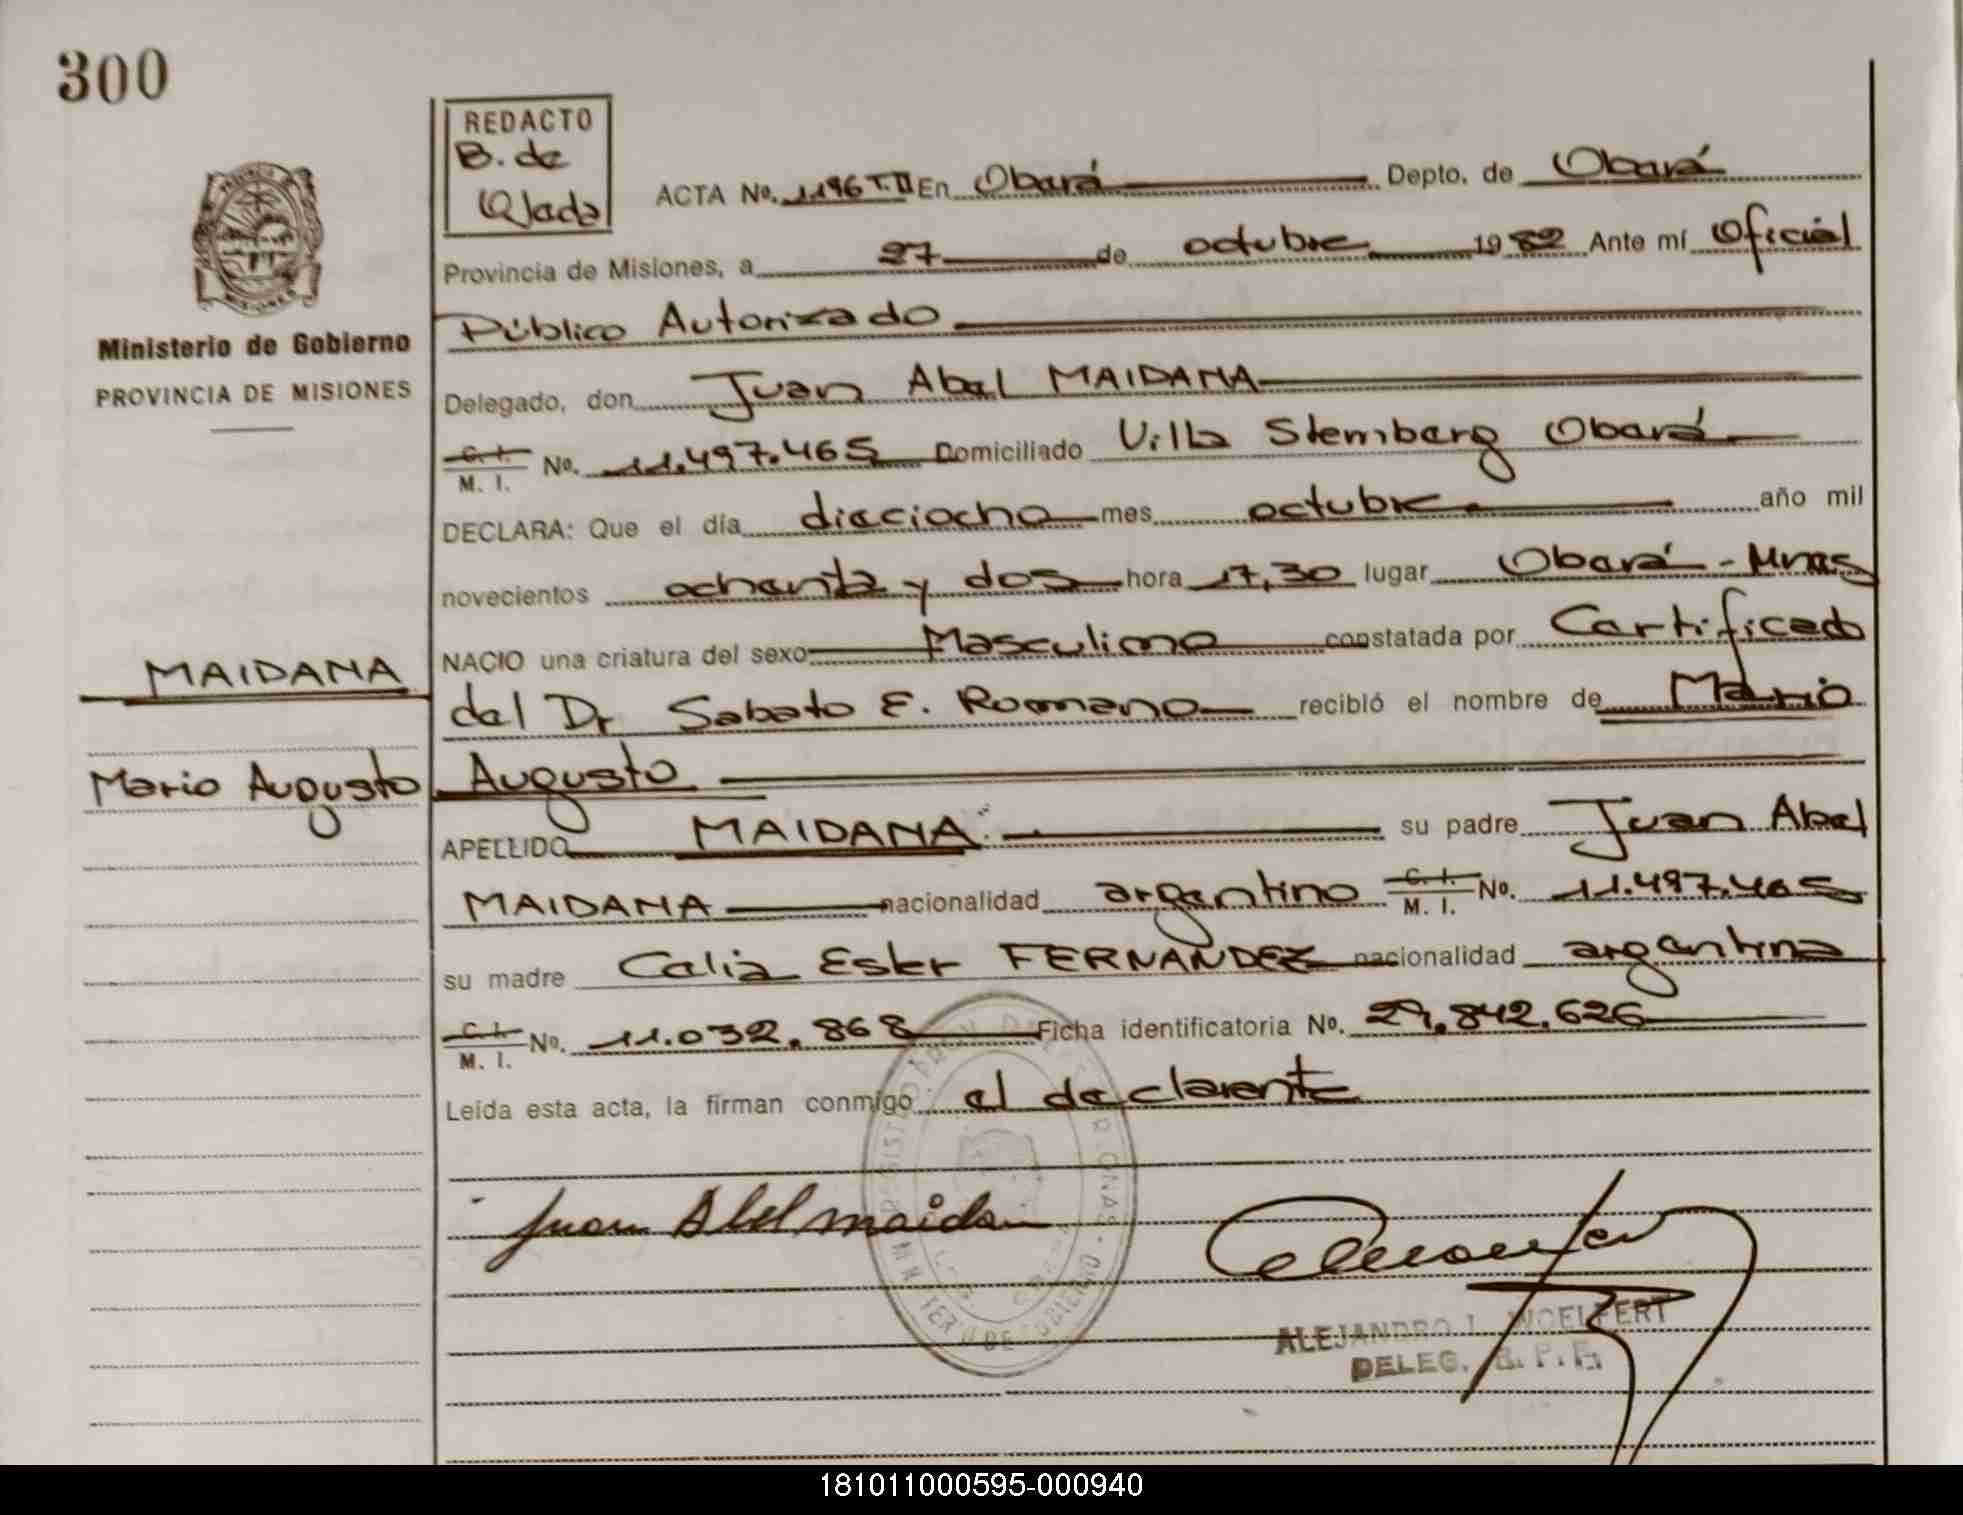 300
REDACTO
B. de
Ojeda
ACTA No. 1196 T.II En Oberá Depto. de Oberá
Provincia de Misiones, a 27 de octubre 1982 Ante mí Oficial
Ministerio de Gobierno
PROVINCIA DE MISIONES
Público Autorizado
Delegado, don Juan Abel MAIDANA
C. I. M. I. No. 11.497.465 Domiciliado Villa Stemberg Oberá
DECLARA: Que el día dieciocho mes octubre año mil
novecientos ochenta y dos hora 17,30 lugar Oberá - Mnes
NACIO una criatura del sexo Masculino constatada por Certificado
MAIDANA
del Dr Sabato E. Romano recibió el nombre de Mario
Mario Augusto
Augusto
APELLIDO MAIDANA su padre Juan Abel
MAIDANA nacionalidad argentino C. I. M. I. No. 11.497.465
su madre Celia Ester FERNANDEZ nacionalidad argentina
C. I. M. I. No. 11.032.868 Ficha identificatoria No. 29.842.626
Leída esta acta, la firman conmigo el declarante
Juan Abel maidana
ALEJANDRO I. WOELFERT
DELEG. R. P. P.
181011000595-000940